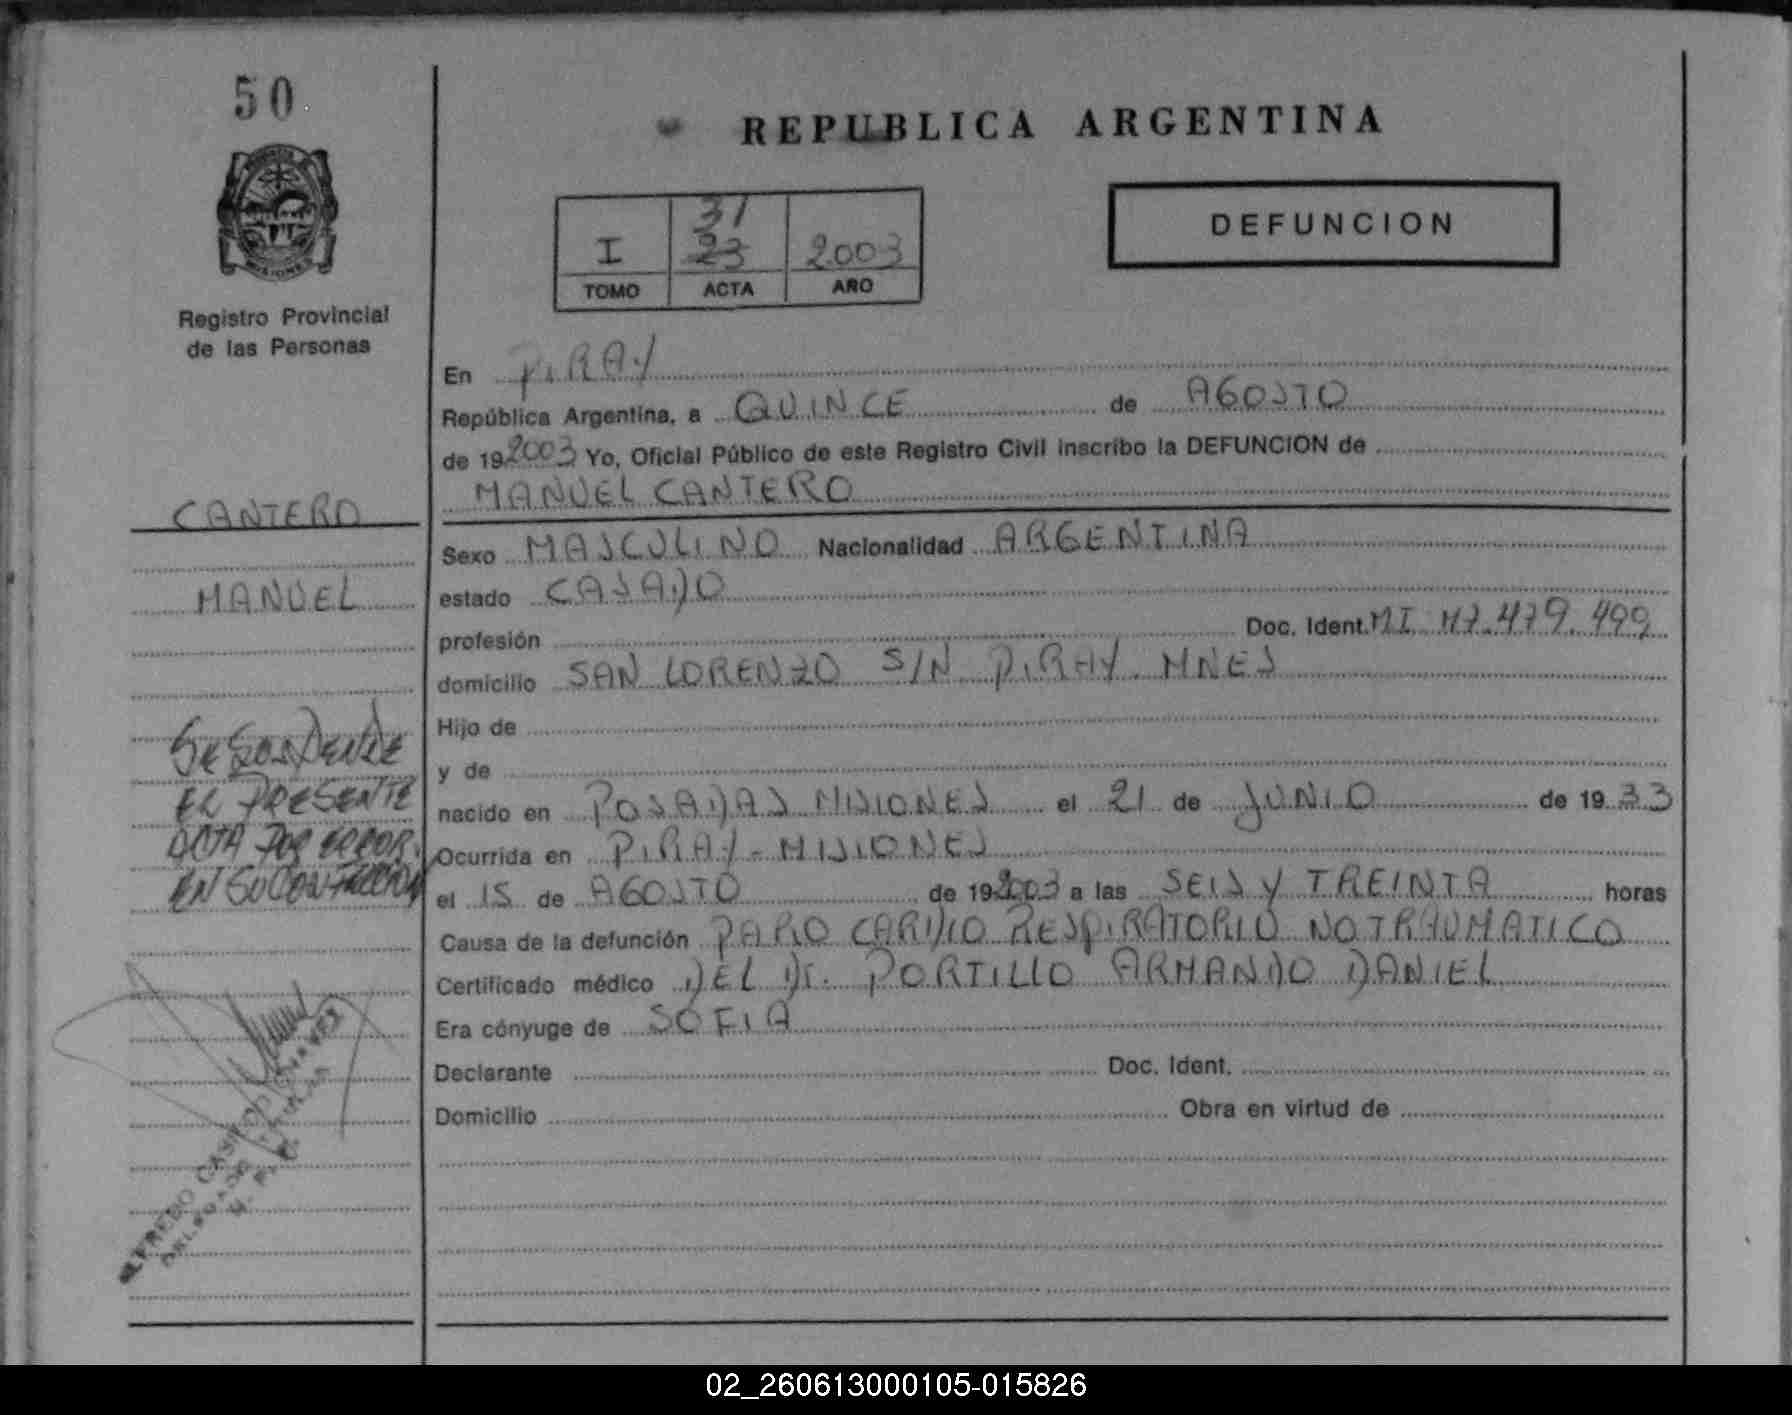 50
REPUBLICA ARGENTINA
MISIONES
Registro Provincial
de las Personas
31
I 23 2003
TOMO ACTA AÑO
DEFUNCION
En PIRAY
República Argentina, a QUINCE de AGOSTO
de 192003 Yo, Oficial Público de este Registro Civil inscribo la DEFUNCION de
MANUEL CANTERO
CANTERO
MANUEL
Sexo MASCULINO Nacionalidad ARGENTINA
estado CASADO
profesión Doc. Ident. MI
domicilio SAN LORENZO S/N PIRAY. MNES
Hijo de
y de
nacido en POSADAS MISIONES el 21 de JUNIO de 1933
Ocurrida en PIRAY - MISIONES
el 15 de AGOSTO de 192003 a las SEIS Y TREINTA horas
Causa de la defunción PARO CARDIO RESPIRATORIO NO TRAUMATICO
Certificado médico DEL Dr. PORTILLO ARMANDO DANIEL
Era cónyuge de SOFIA
Declarante Doc. Ident.
Domicilio Obra en virtud de
EL PRESENTE
ACTA POR ERROR
EN SU CONFECCION
02_260613000105-015826